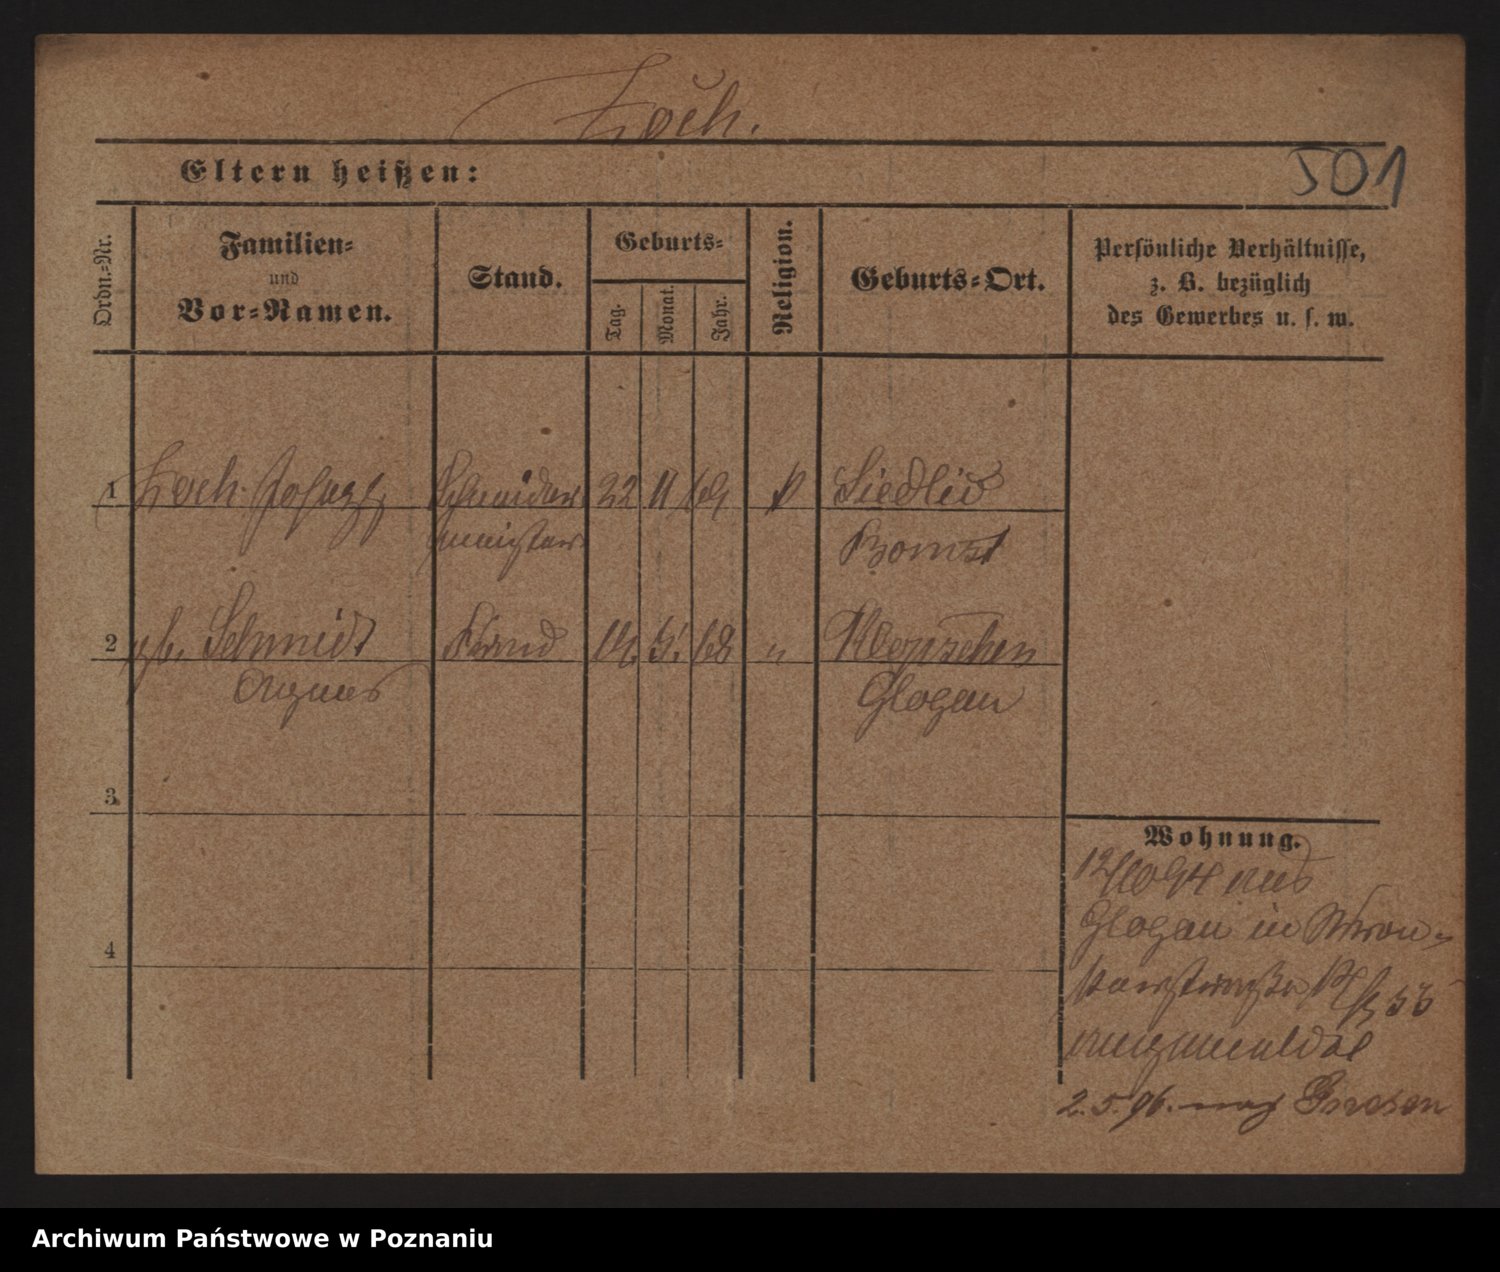 Koch.
Eltern heißen:
501
Ordn.-Nr.
Familien-
und
Vor-Namen.
Stand.
Geburts-
Tag.
Monat.
Jahr.
Religion.
Geburts-Ort.
Persönliche Verhältnisse,
z. B. bezüglich
des Gewerbes u. s. w.
1 Koch Joseph Schneider 22 11 Siedlec
meister Bomst
2 gb. Schmidt Kind 14. 5. 68 " Klopschen
Agnes Glogau
3
4
Wohnung.
12/10 94 aus
Glogau in
angemeldet
2. 5. 96. nach Gnesen
Archiwum Państwowe w Poznaniu